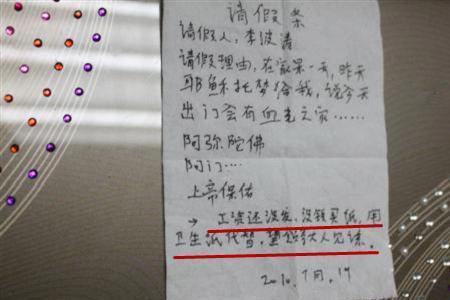 请假条
请假人:李波清
请假理由:在家呆一天,昨天
耶稣托梦给我,说今天
出门会有血光之灾……
阿弥陀佛
阿门…
上帝保佑
→ 工资还没发,没钱买纸,用
卫生纸代替,望领大人见谅。
2010.7月.19